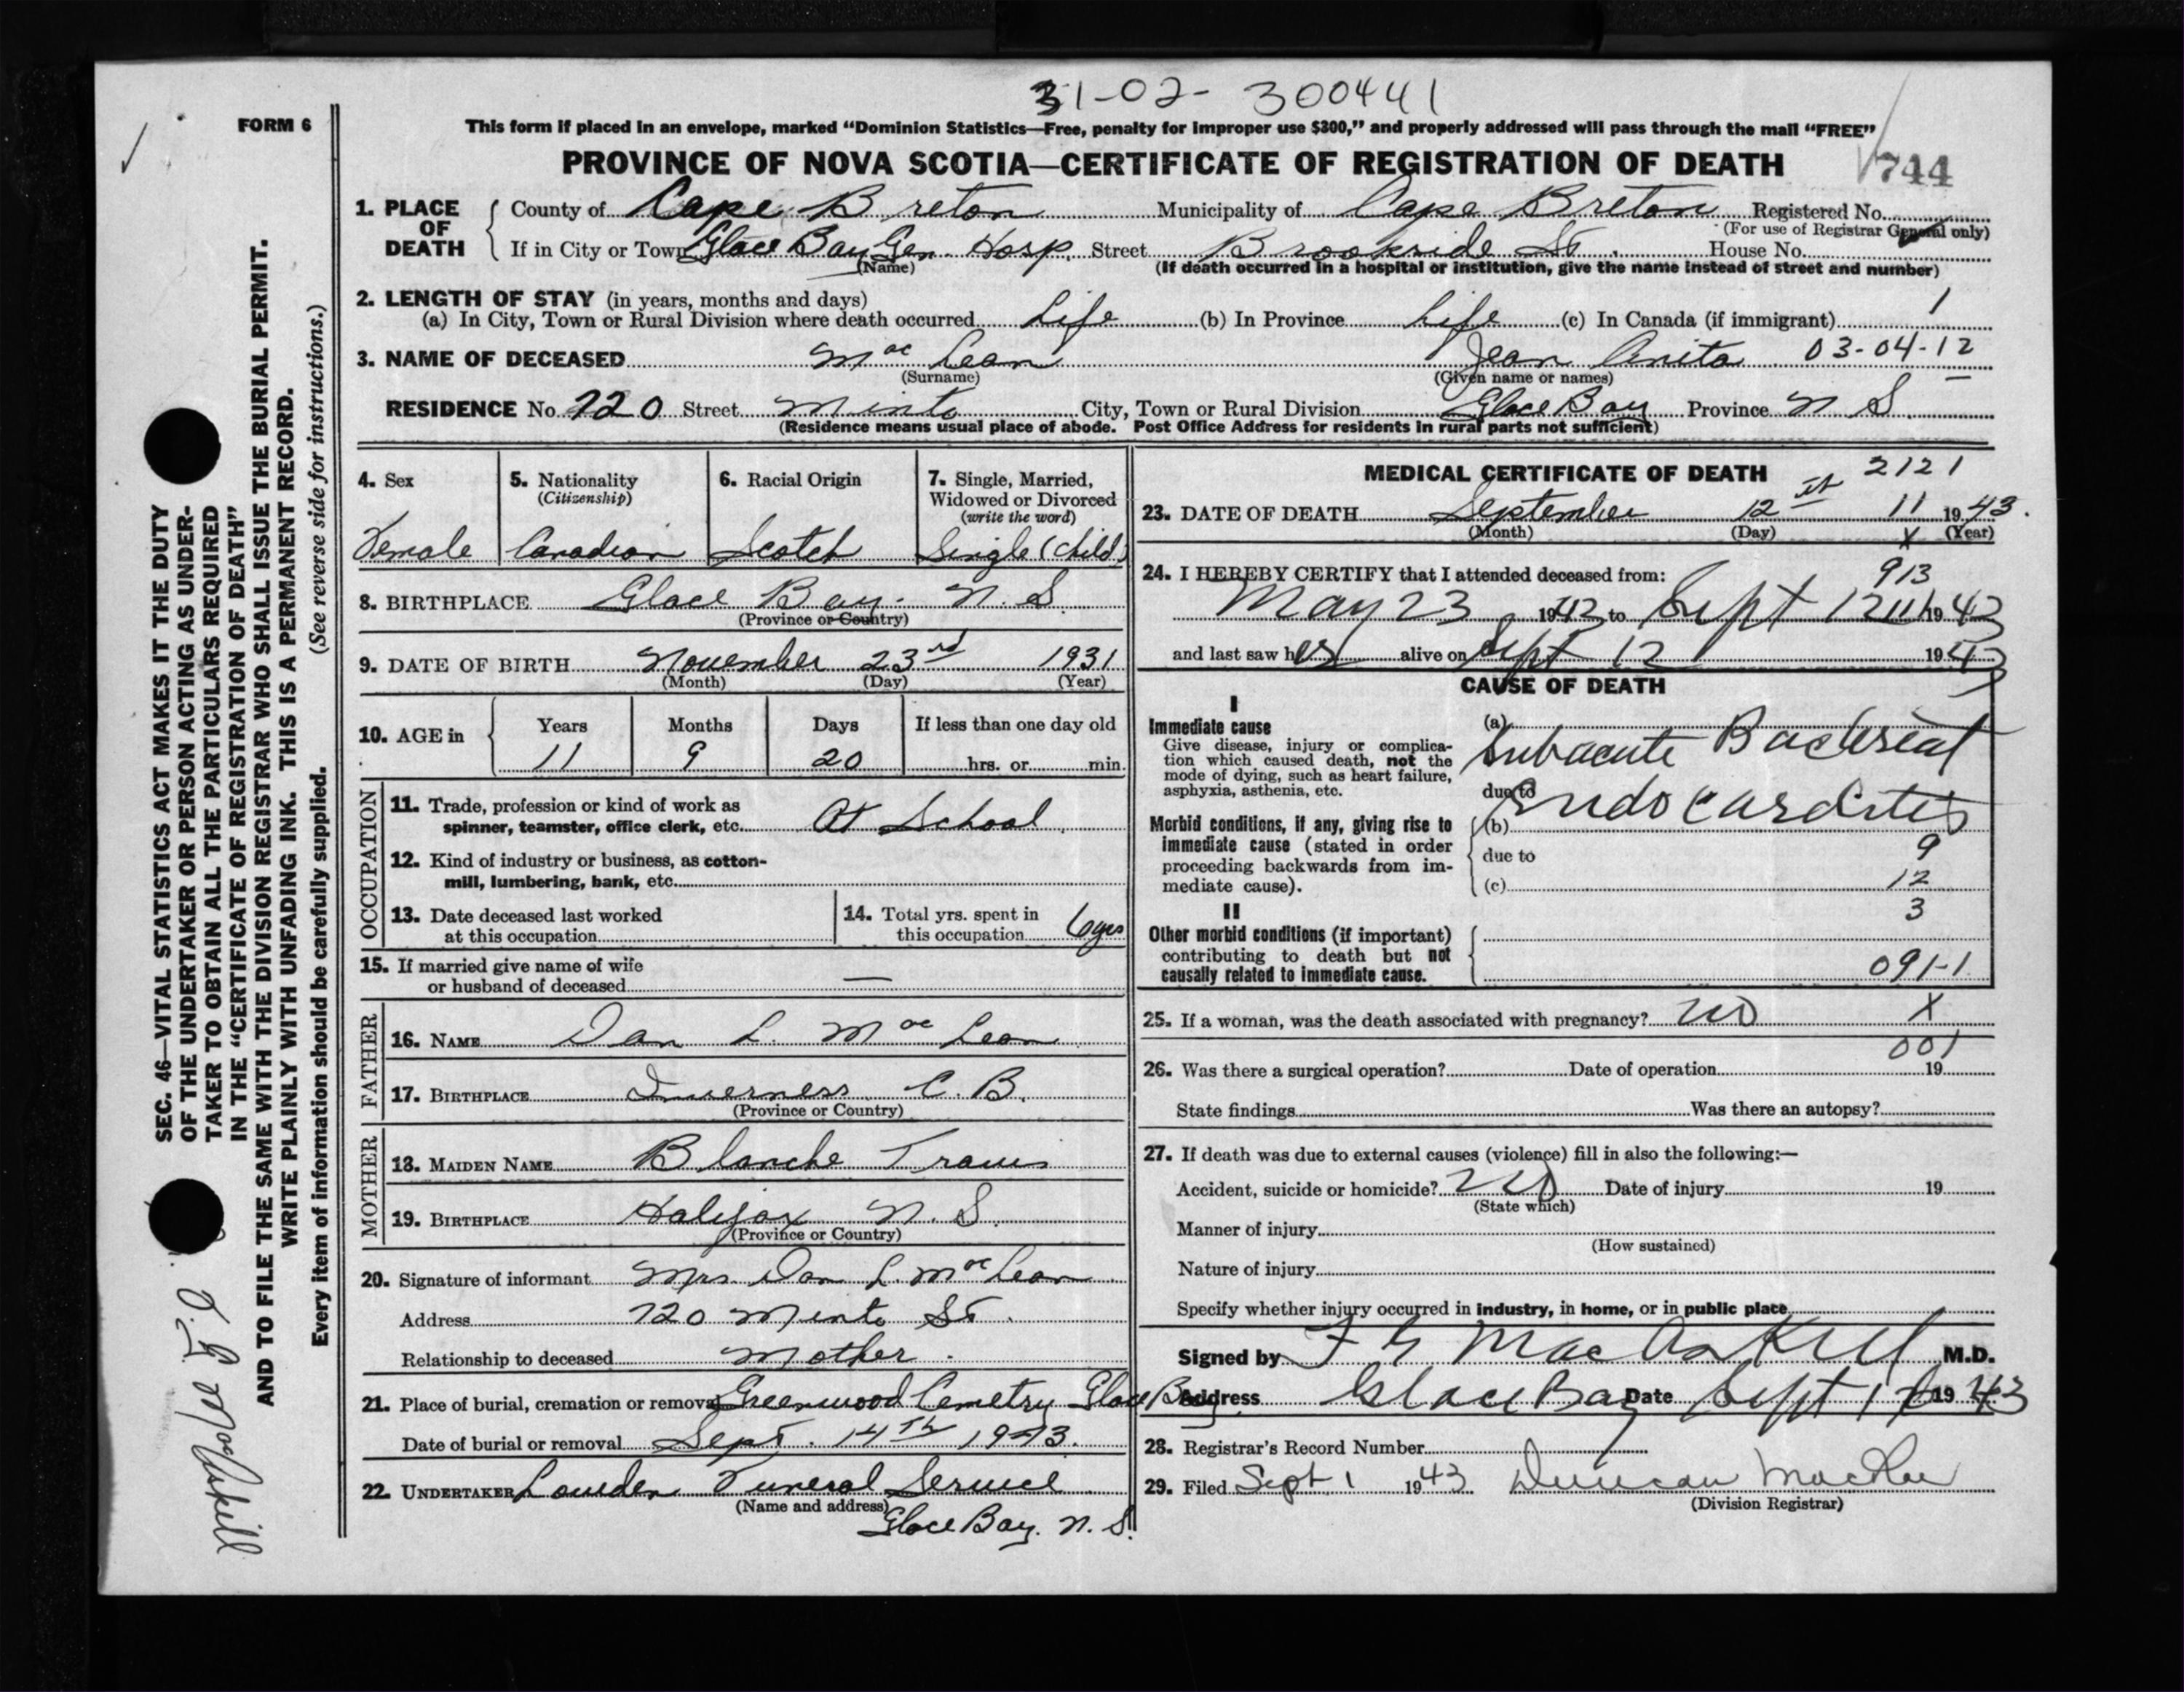 31-02- 300441
FORM 6
This form if placed in an envelope, marked “Dominion Statistics—Free, penalty for improper use $300,” and properly addressed will pass through the mail “FREE”
PROVINCE OF NOVA SCOTIA—CERTIFICATE OF REGISTRATION OF DEATH
744
1. PLACE OF DEATH
County of Cape Breton Municipality of Cape Breton Registered No.
(For use of Registrar General only)
If in City or Town Glace Bay Gen. Hosp. Street Brookside St. House No.
(Name) (If death occurred in a hospital or institution, give the name instead of street and number)
2. LENGTH OF STAY (in years, months and days)
(a) In City, Town or Rural Division where death occurred Life (b) In Province Life (c) In Canada (if immigrant) 1
3. NAME OF DECEASED MacLean Jean Anita 03-04-12
(Surname) (Given name or names)
RESIDENCE No. 720 Street Minto City, Town or Rural Division Glace Bay Province N S.
(Residence means usual place of abode. Post Office Address for residents in rural parts not sufficient)
4. Sex
Female
5. Nationality
(Citizenship)
Canadian
6. Racial Origin
Scotch
7. Single, Married,
Widowed or Divorced
(write the word)
Single (child)
8. BIRTHPLACE Glace Bay. N. S.
(Province or Country)
9. DATE OF BIRTH November 23rd 1931
(Month) (Day) (Year)
10. AGE in
Years Months Days If less than one day old
11 9 20 hrs. or min.
OCCUPATION
11. Trade, profession or kind of work as
spinner, teamster, office clerk, etc. At School
12. Kind of industry or business, as cotton-
mill, lumbering, bank, etc.
13. Date deceased last worked
at this occupation
14. Total yrs. spent in
this occupation 6 yrs
15. If married give name of wife
or husband of deceased —
FATHER
16. NAME Dan L. MacLean
17. BIRTHPLACE Inverness C. B.
(Province or Country)
MOTHER
18. MAIDEN NAME Blanche Travis
19. BIRTHPLACE Halifax N. S.
(Province or Country)
20. Signature of informant Mrs. Dan L. MacLean
Address 720 Minto St.
Relationship to deceased Mother.
21. Place of burial, cremation or removal Greenwood Cemetry Glace Bay.
Date of burial or removal Sept. 14th 1943.
22. UNDERTAKER Lowden Funeral Service
(Name and address)
Glace Bay. N. S.
MEDICAL CERTIFICATE OF DEATH 2121
23. DATE OF DEATH September 12 11 1943.
(Month) (Day) X (Year)
24. I HEREBY CERTIFY that I attended deceased from: 913
May 23 1942 to Sept 12 11 1943
and last saw her alive on Sept 12 1943
CAUSE OF DEATH
I
Immediate cause
Give disease, injury or complica-
tion which caused death, not the
mode of dying, such as heart failure,
asphyxia, asthenia, etc.
(a)
Subacute Bacterial
due to
Endocarditis
Morbid conditions, if any, giving rise to
immediate cause (stated in order
proceeding backwards from im-
mediate cause).
(b)
due to 9
(c) 12
II 3
Other morbid conditions (if important)
contributing to death but not
causally related to immediate cause.
091-1
25. If a woman, was the death associated with pregnancy? no X
001
26. Was there a surgical operation? Date of operation 19
State findings Was there an autopsy?
27. If death was due to external causes (violence) fill in also the following:—
Accident, suicide or homicide? no Date of injury 19
(State which)
Manner of injury
(How sustained)
Nature of injury
Specify whether injury occurred in industry, in home, or in public place
Signed by F G MacAskill M.D.
Address Glace Bay Date Sept 1943
28. Registrar's Record Number
29. Filed Sept. 1 1943 Duncan MacRae
(Division Registrar)
SEC. 46—VITAL STATISTICS ACT MAKES IT THE DUTY
OF THE UNDERTAKER OR PERSON ACTING AS UNDER-
TAKER TO OBTAIN ALL THE PARTICULARS REQUIRED
IN THE “CERTIFICATE OF REGISTRATION OF DEATH”
AND TO FILE THE SAME WITH THE DIVISION REGISTRAR WHO SHALL ISSUE THE BURIAL PERMIT.
WRITE PLAINLY WITH UNFADING INK. THIS IS A PERMANENT RECORD.
Every item of information should be carefully supplied. (See reverse side for instructions.)
MacAskill